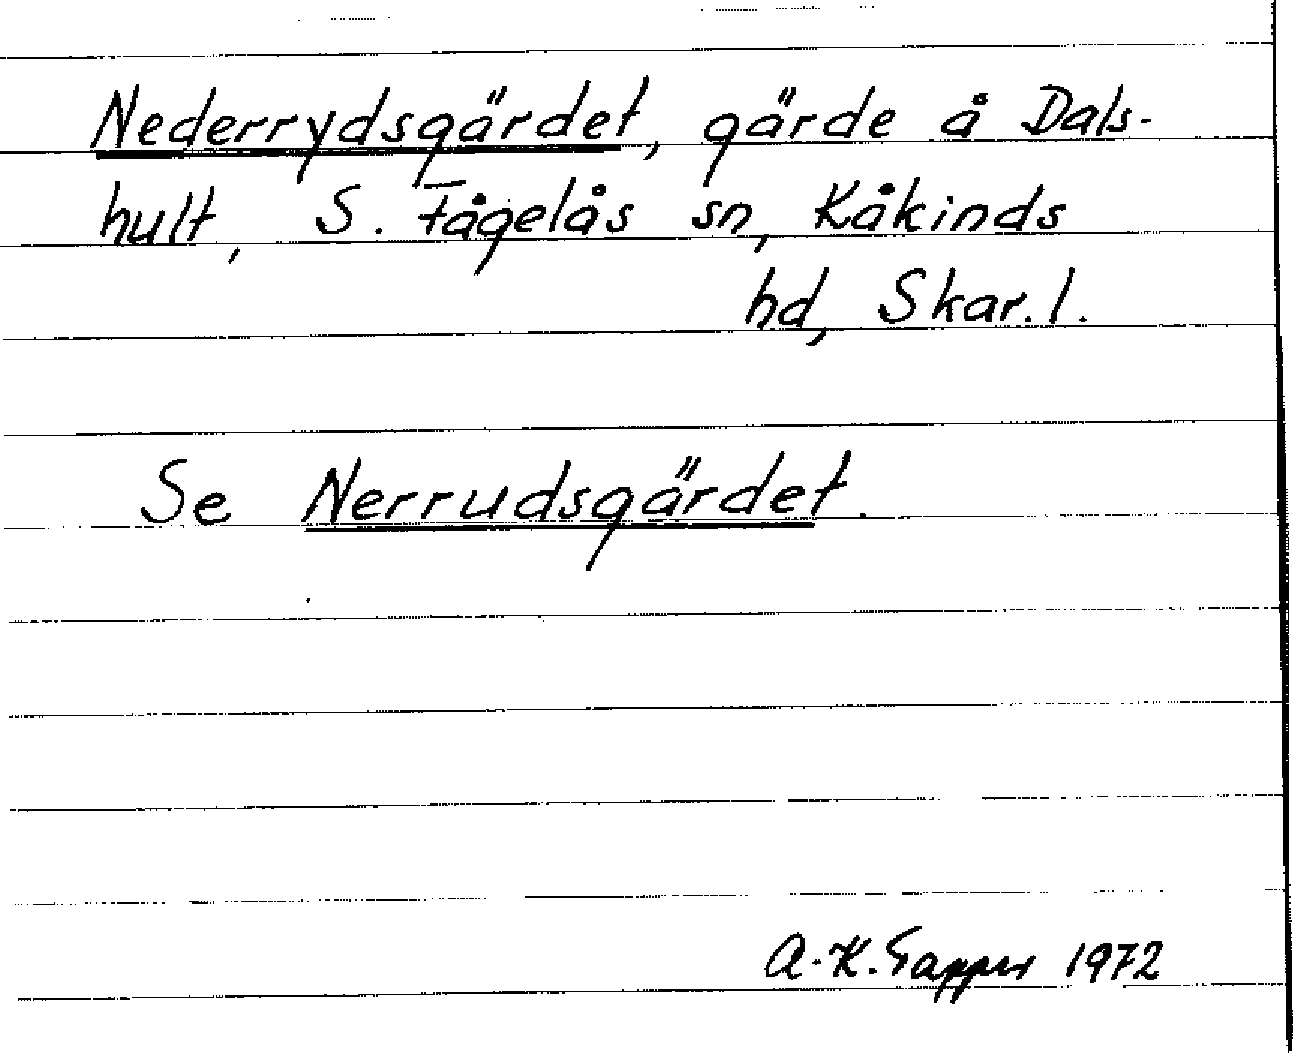 Nederrydsgärdet, gärde å Dals-
hult, S. Fågelås sn, Kåkinds
hd, Skar. l.
Se Nerrudsgärdet.
A.-K. Tapper 1972